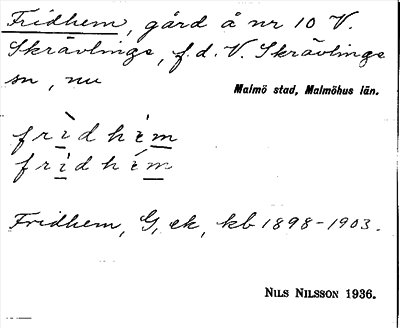 Fridhem, gård å nr 10 V.
Skrävlinge, f.d. V. Skrävlinge
sn, nu
Malmö stad, Malmöhus län.
frìdhèm
frìdhém
Fridhem, G, ek, kb 1898-1903.
NILS NILSSON 1936.